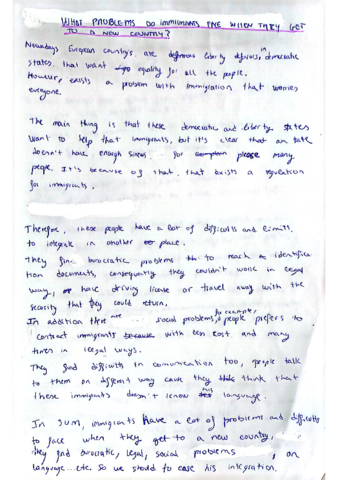 WHAT PROBLEMS DO IMMIGRANTS FIND WHEN THEY GET
TO A NEW COUNTRY?
Nowadays European country's are liberty in democratic
states. that want equality for all the people.
However, exists a problem with immigration that worries
everyone.
The main thing is that these democratic and liberty states
want to help that immigrants, but it's clear that an state
doesn't have enough for please many
people. It's because of that, that exists a regulation
for immigrants.
Therefor, these people have a lot of difficults and limits
to integrate in another place.
They find burocratic problems to reach identifica
tion documents, consequently they couldn't work in legal
way, or have driving license or travel away with the
security that they could return.
In addition there are social problems, for example, people prefers to
contract immigrants with less cost and many
times in ilegal ways.
They find difficults in comunication too, people talk
to them on diferent way cause they think that
these immigrants doesn't know his language.
In sum, immigrants have a lot of problems and difficults
to face when they get to a new country.
they find burocratic, legal, social problems, on
language...etc. So we should to ease his integration.